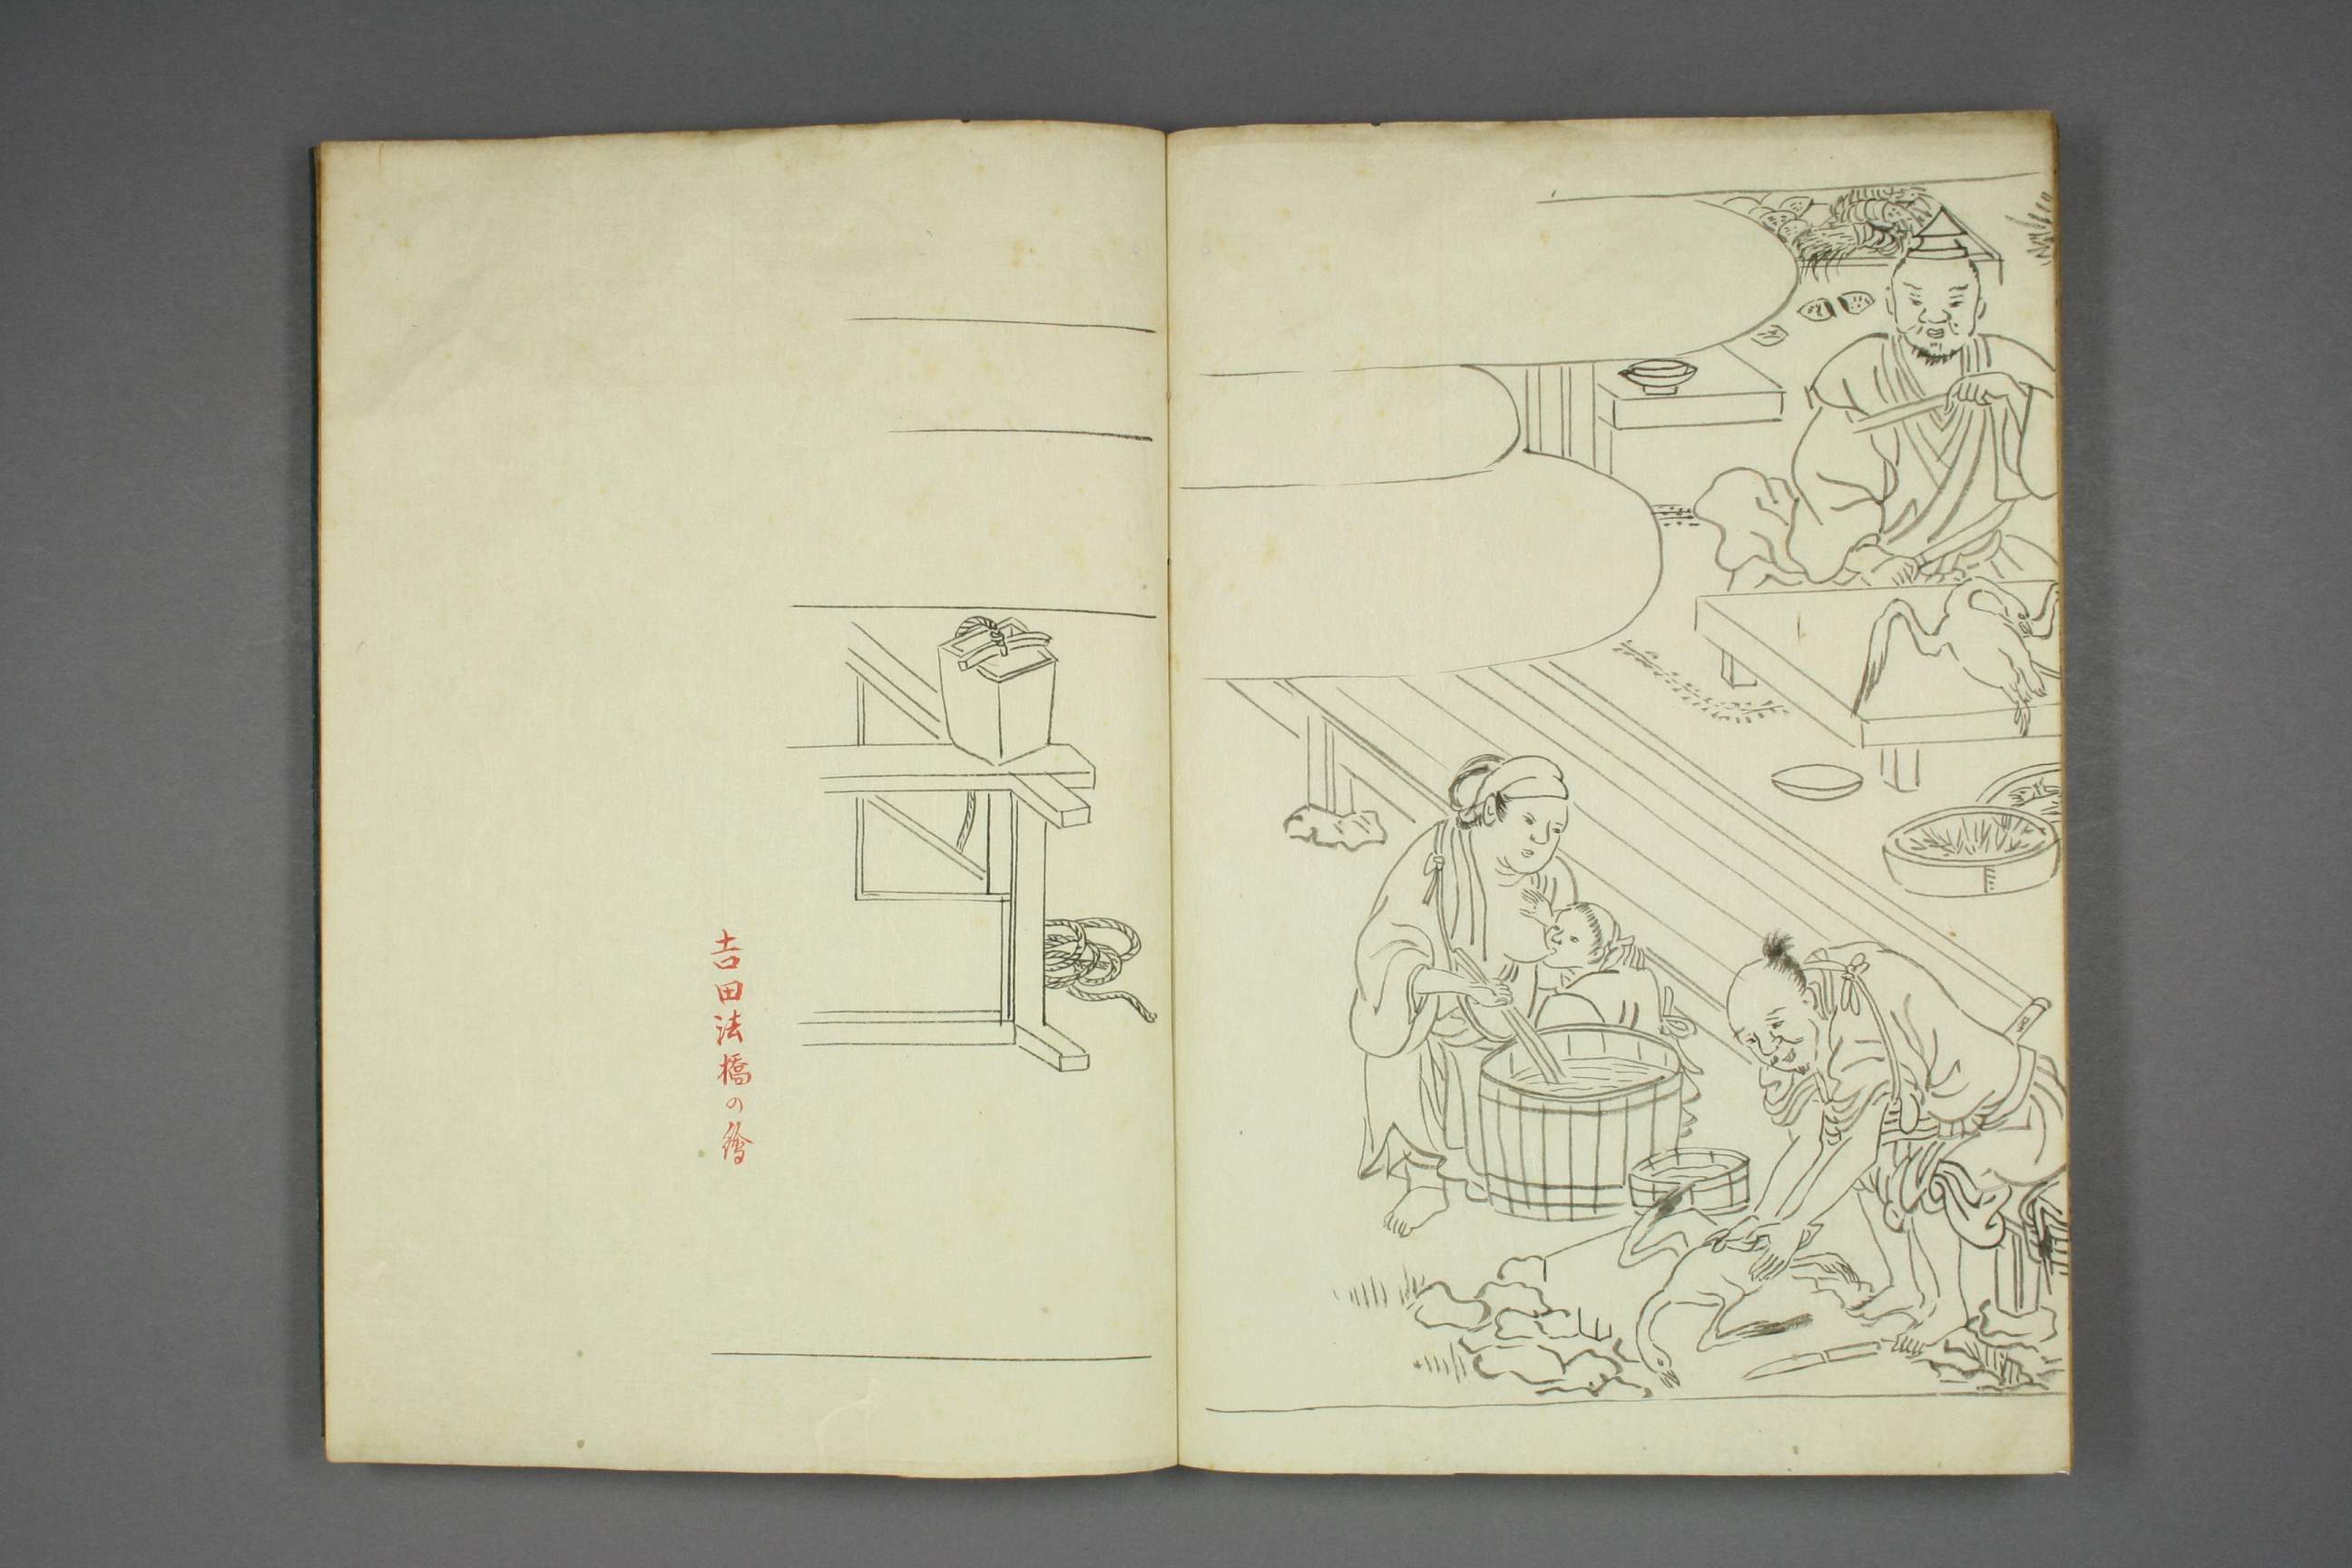 吉田法橋の繪